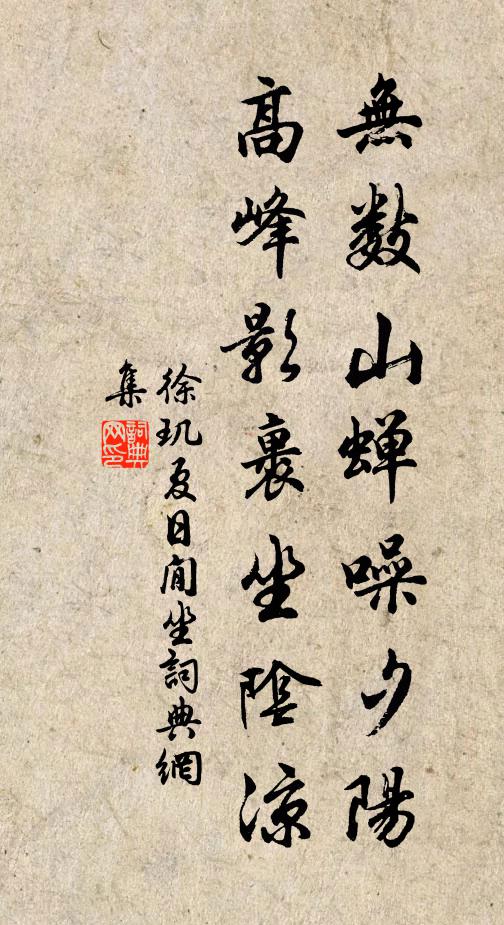 無數山蝉噪夕陽
高峰影裹坐陰涼
徐玑夏日閒坐詞典網
集
詞典
网印